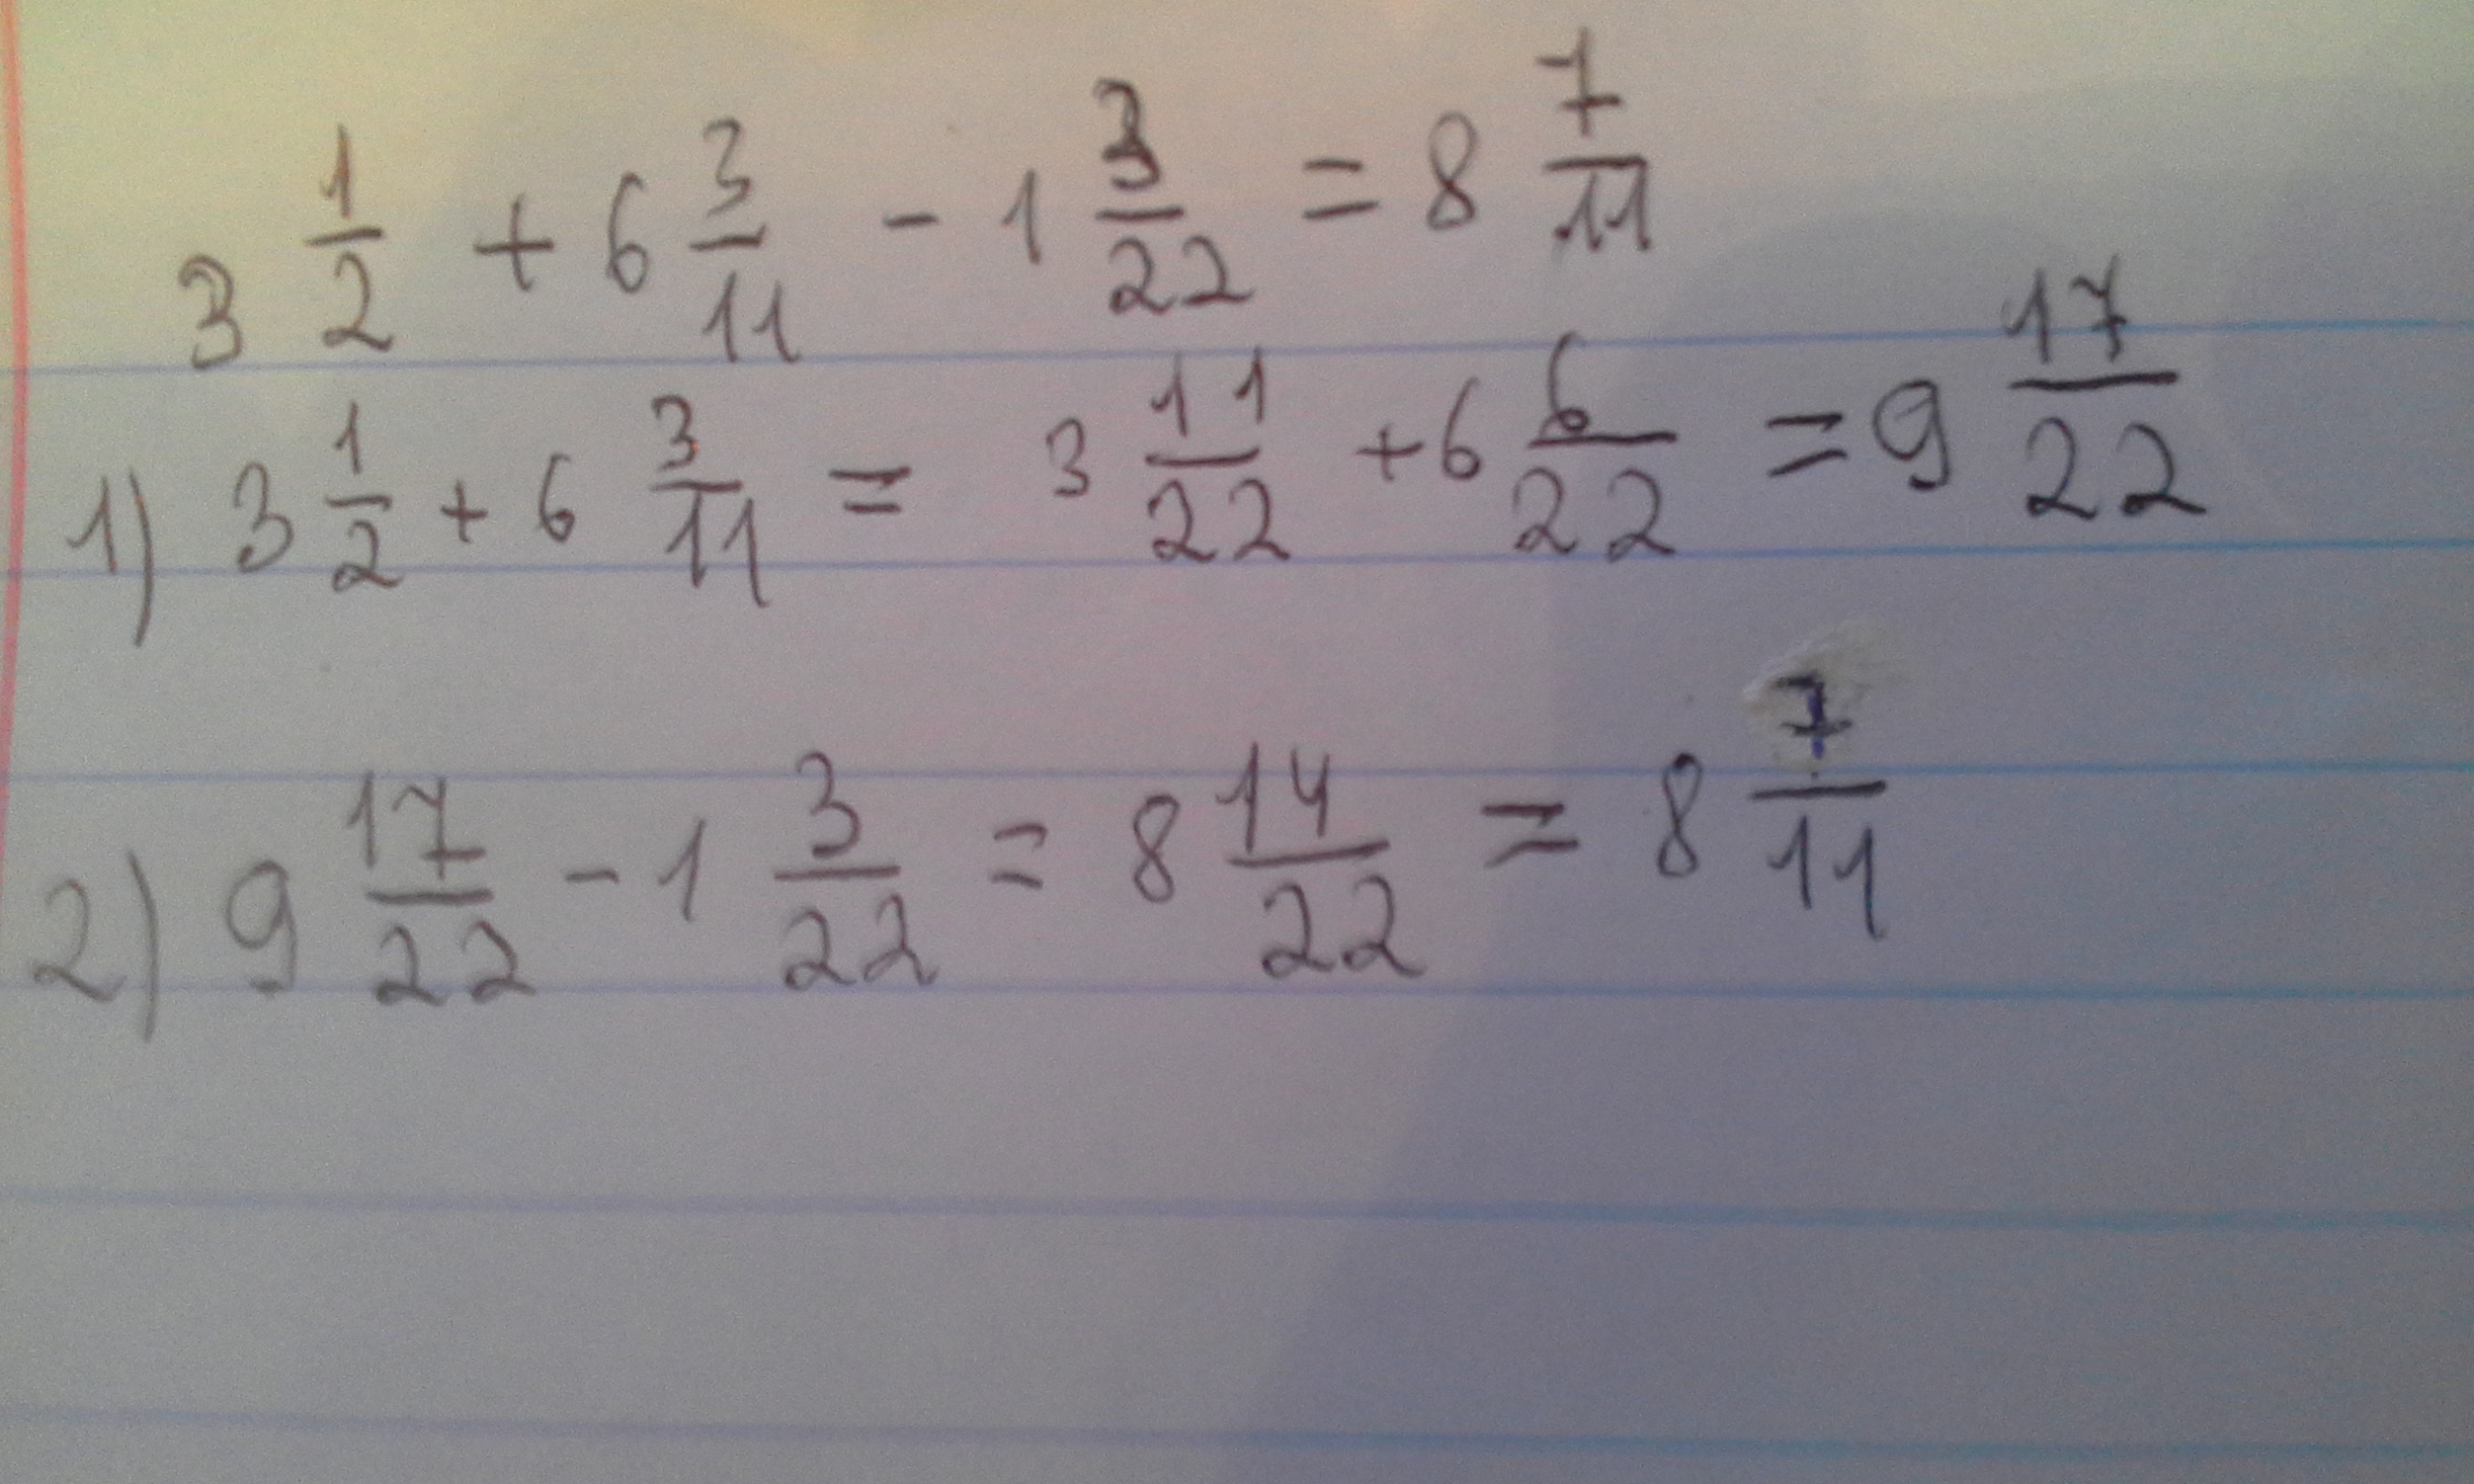 3 1/2 + 6 3/11 - 1 3/22 = 8 7/11
1) 3 1/2 + 6 3/11 = 3 11/22 + 6 6/22 = 9 17/22
2) 9 17/22 - 1 3/22 = 8 14/22 = 8 7/11